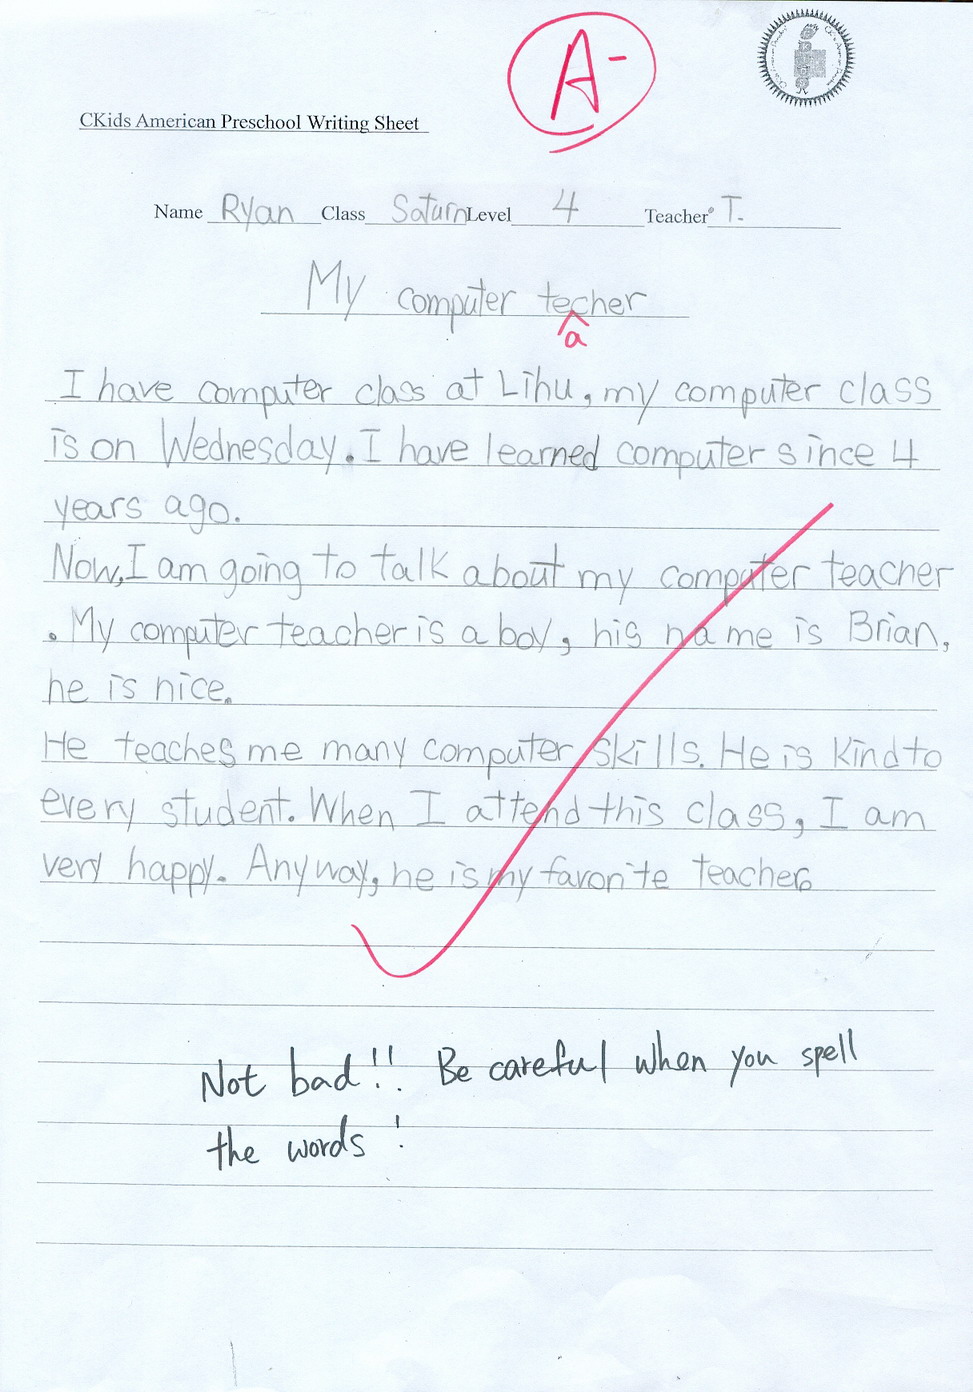 A-
CKids American Preschool Writing Sheet
Name Ryan Class Saturn Level 4 Teacher T.
My computer techer
a
I have computer class at Lihu, my computer class
is on Wednesday. I have learned computer since 4
years ago.
Now, I am going to talk about my computer teacher
. My computer teacher is a boy, his name is Brian,
he is nice.
He teaches me many computer skills. He is kind to
every student. When I attend this class, I am
very happy. Anyway, he is my favorite teacher.
Not bad!! Be careful when you spell
the words!